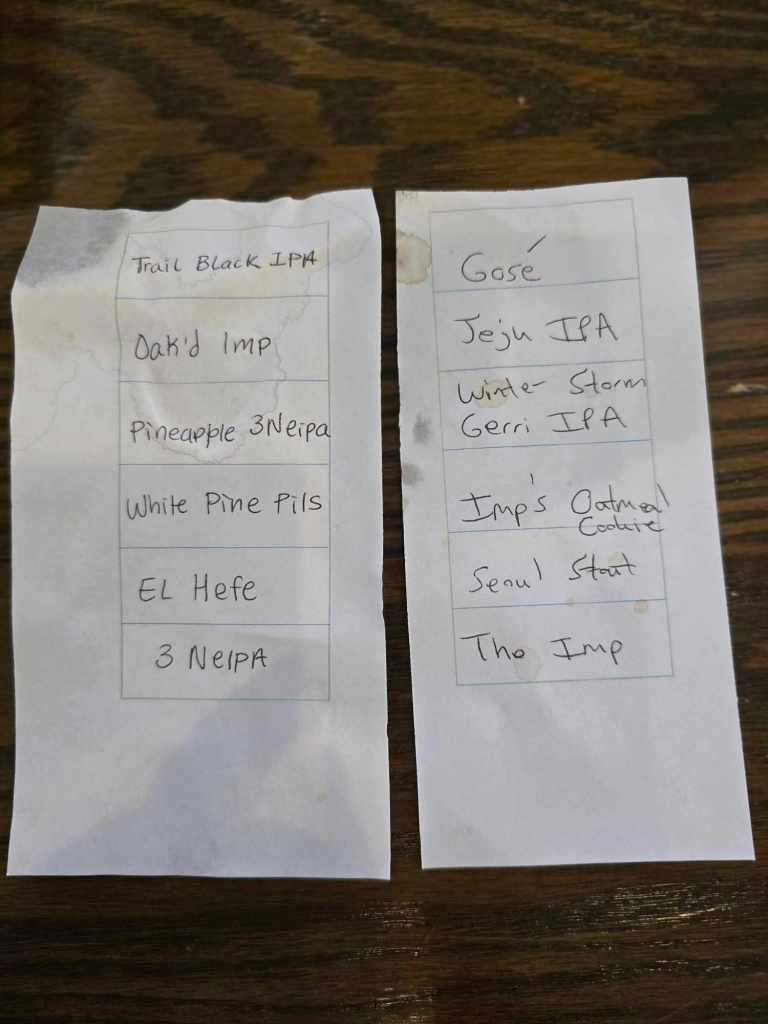 Trail Black IPA
Oak'd Imp
Pineapple 3Neipa
White Pine Pils
EL Hefe
3 NEIPA
Gosé
Jeju IPA
Winter Storm
Gerri IPA
Imp's Oatmeal
Cookie
Seoul Stout
The Imp